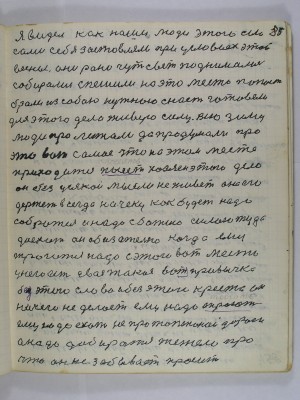 я видел как наши люди этого село
сами себя заставляли при условиях этой
весны. они рано чуть свет поднимались
собирались спешили на это место
брали из собою нужною снасть готовили
для этого дело живую силу. всю зиму
люди пролежали да продумали про
это вот самое что на этом месте
приходится этого дело
он без всякой мысли не живет он его
держит всегда на чеку как будет надо
собраться и надо с божию силою туда
он обязательно когда ему
надо с этого вот места
у него есть своя такая вот привычка
без этого слова без этого креста он
ничего не делает ему надо
ему надо ехать не протоптанной дороги
а надо добираться тяжело про
что он не забывает просит